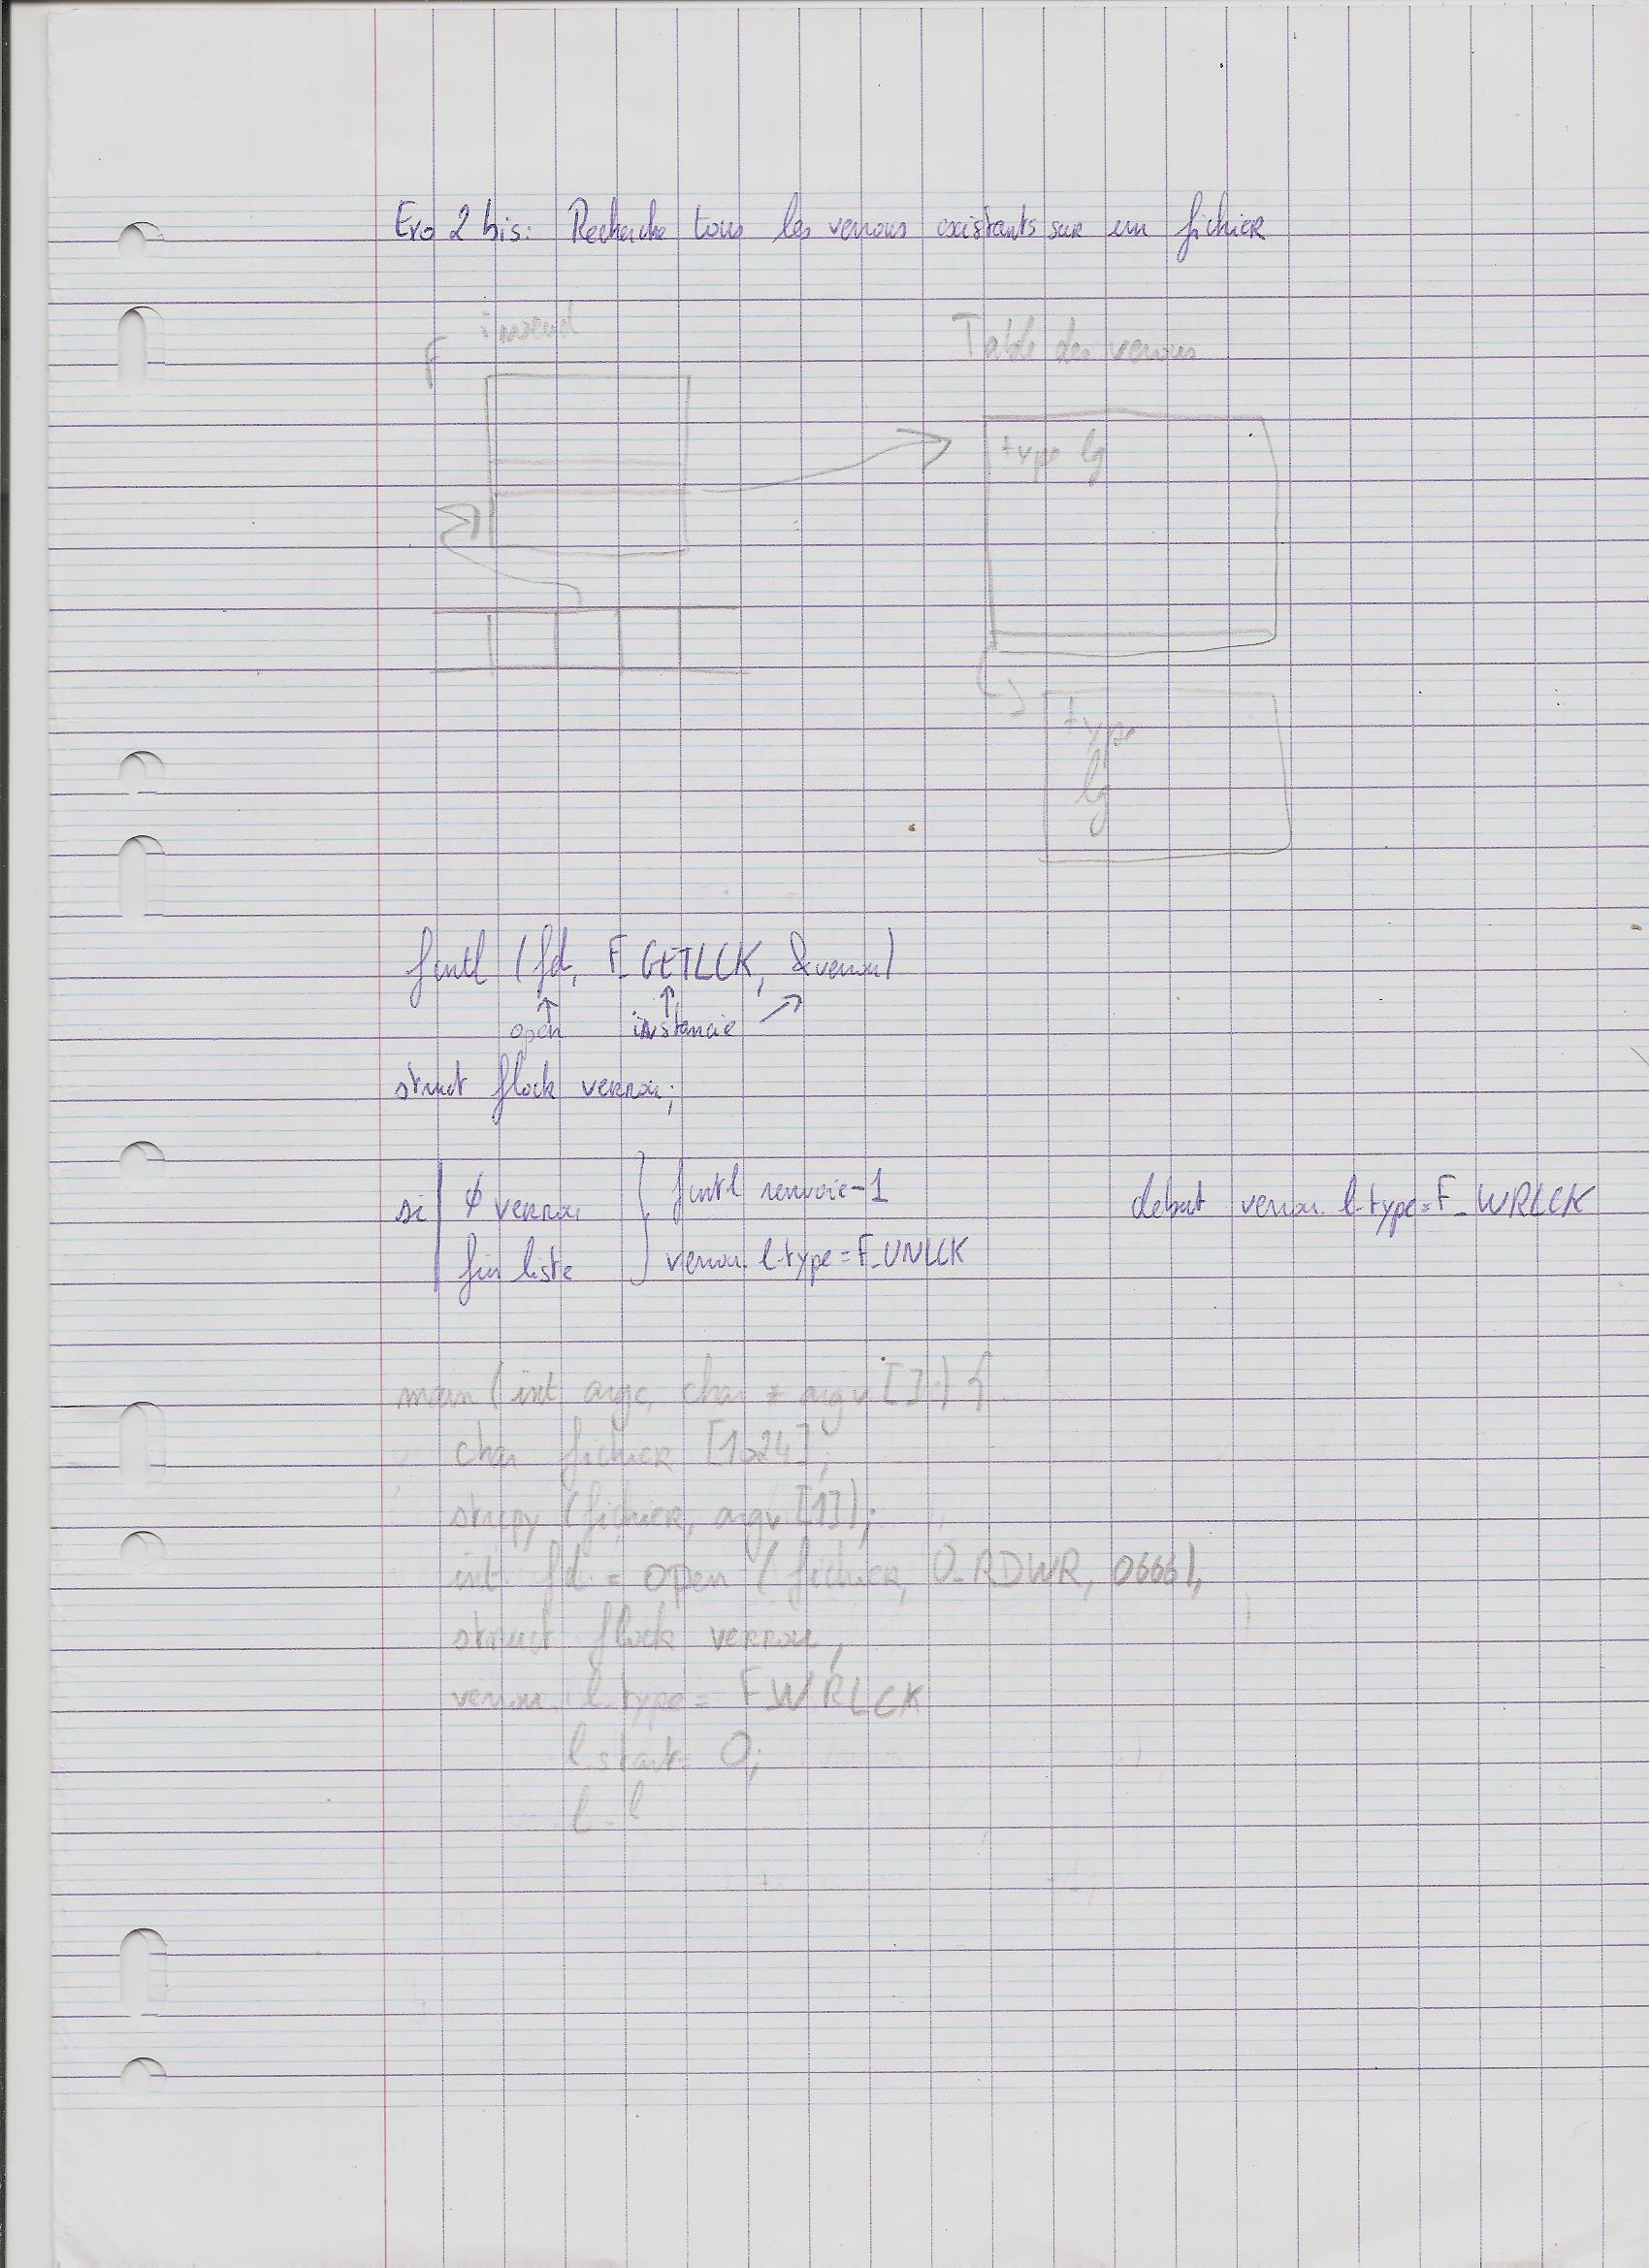 Exo 2 bis: Recherche tous les verrous existants sur un fichier
F inoeud
Table des verrous
type lg
type
lg
fcntl (fd, F_GETLCK, &verrou)
open instancie
struct flock verrou;
si ∅ verrou fcntl renvoie -1 debut verrou.l_type=F_WRLCK
fin liste verrou.l_type=F_UNLCK
main (int argc, char * argv[]) {
char fichier [1024];
strcpy (fichier, argv[1]);
int fd = open (fichier, O_RDWR, 0666);
struct flock verrou;
verrou.l_type= F_WRLCK
l_start= 0;
l_l